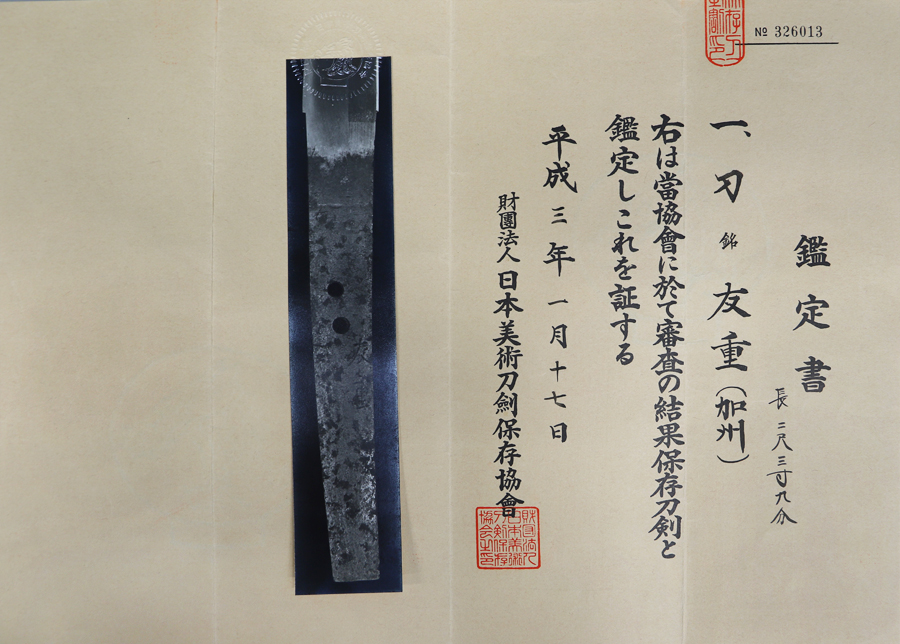 № 326013
鑑定書
長二尺三寸九分
一、刀 銘 友重(加州)
右は當協會に於て審査の結果保存刀剣と
鑑定しこれを証する
平成三年一月十七日
財團法人日本美術刀劍保存協會
財団法人
日本美術
刀剣保存
協会之印